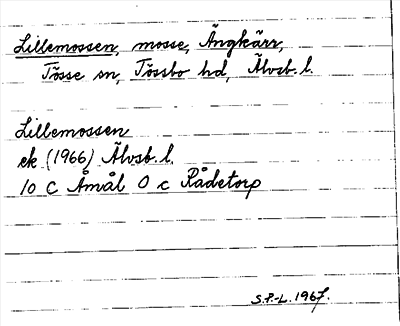 Lillemossen, mosse, Ängkärr,
Tösse sn, Tössbo hd, Älvsb. l.
Lillemossen
ek (1966) Älvsb. l.
10 C Åmål O c Rådetorp
S.P.-L. 1967.